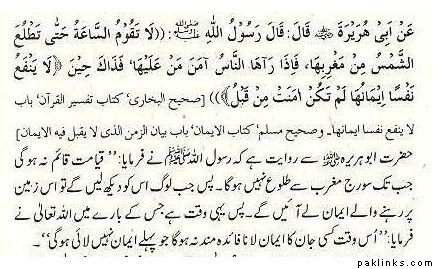 عَنْ اَبِی هُرَیْرَةَ ﷛ قَالَ: قَالَ رَسُوْلُ اللّٰهِ ﷺ: ((لَا تَقُوْمُ السَّاعَةُ حَتّٰی تَطْلُعَ
الشَّمْسُ مِنْ مَغْرِبِهَا، فَاِذَا رَآهَا النَّاسُ آمَنَ مَنْ عَلَیْهَا، فَذَاکَ حِیْنَ ﴿لَا یَنْفَعُ
نَفْسًا اِیْمَانُهَا لَمْ تَکُنْ اٰمَنَتْ مِنْ قَبْلُ﴾)) [صحیح البخاری، کتاب تفسیر القرآن، باب
لا ینفع نفسا ایمانها۔ وصحیح مسلم، کتاب الایمان، باب بیان الزمن الذی لا یقبل فیه الایمان]
حضرت ابوہریرہ سے روایت ہے کہ رسول اللہ ﷺ نے فرمایا: ’’قیامت قائم نہ ہوگی
جب تک سورج مغرب سے طلوع نہیں ہوگا۔ پس جب لوگ اس کو دیکھ لیں گے تو اس زمین
پر رہنے والے ایمان لے آئیں گے۔ پس یہی وقت ہے جس کے بارے میں اللہ تعالیٰ نے
فرمایا: ’’اُس وقت کسی جان کا ایمان لانا فائدہ مند نہ ہوگا جو پہلے ایمان نہیں لائی ہوگی‘‘۔
paklinks.com